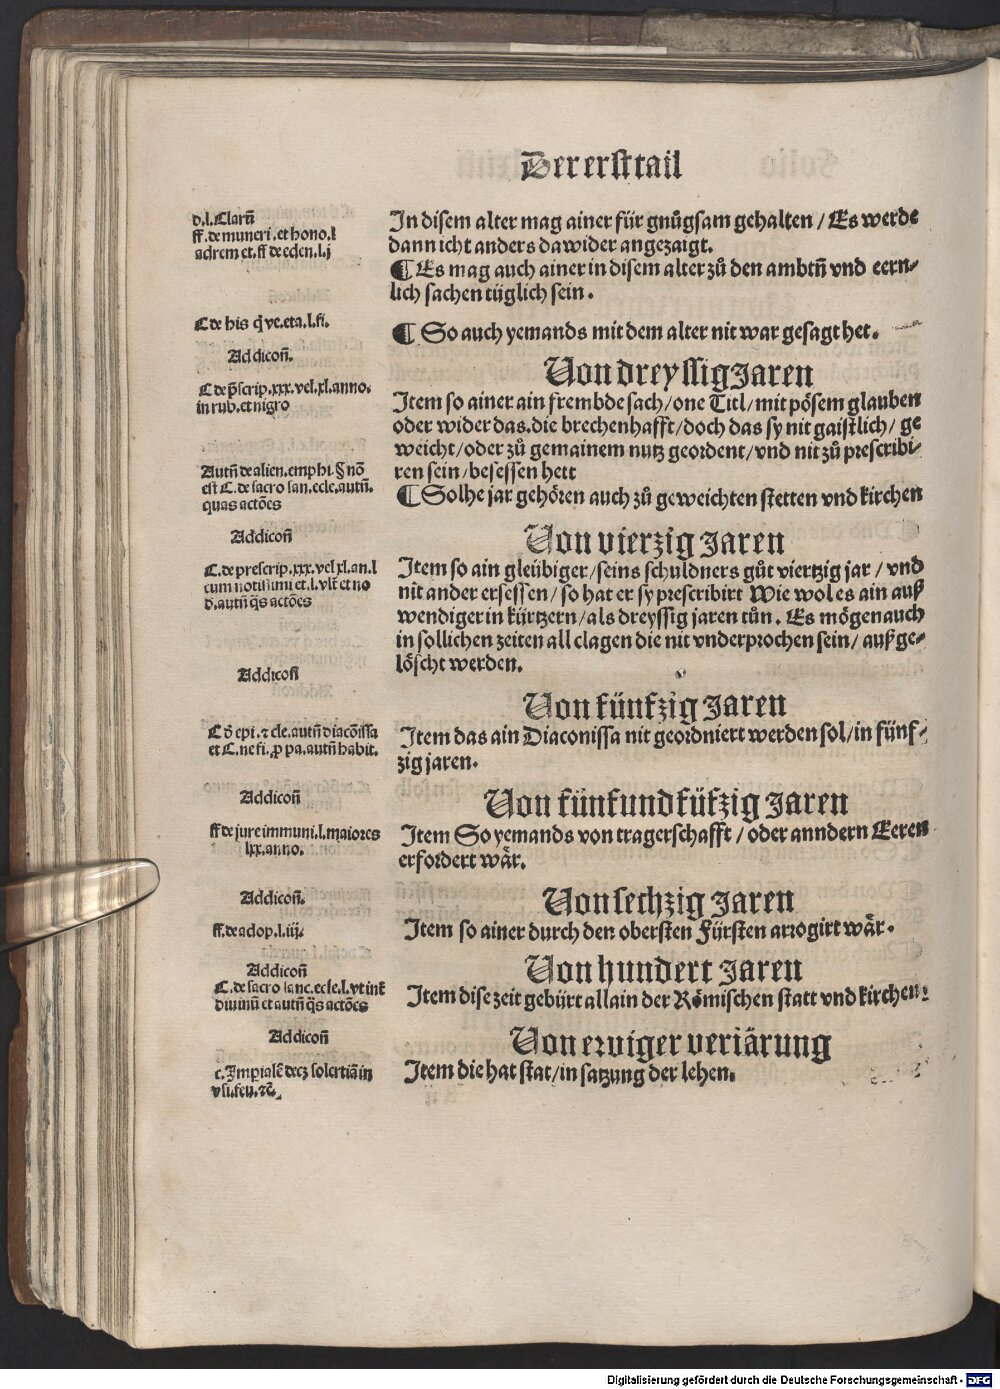 Der erst tail
d. l. Clarū
ff. de muneri. et hono. l
ad rem et. ff de eden. l. j
In disem alter mag ainer für gnůgsam gehalten / Es werde
dann icht anders dawider angezaigt.
¶ Es mag auch ainer in disem alter zů den ambtn̄ vnd eern⸗
lich sachen tüglich sein.
C de his q̇ ve. eta. l. fi.
¶ So auch yemands mit dem alter nit war gesagt het.
Addicon̄.
Von dreyssig Jaren
C de p̄scrip. xxx. vel. xl. anno.
in rub. et nigro
Item so ainer ain frembde sach / one Titl / mit pösem glauben
oder wider das. die brechenhafft / doch das sy nit gaistlich / ge
weicht / oder zů gemainem nutz geordent / vnd nit zů prescribi⸗
ren sein / besessen hett
Autn̄ de alien. emphi. § nō
est C. de sacro san. ecle. autn̄.
quas actōes
¶ Solhe jar gehören auch zů geweichten stetten vnd kirchen
Addicon̄
Von vierzig Jaren
C. de prescrip. xxx. vel xl. an. l
cum notissimi et. l. vlt̄ et no
d. autn̄ q̄s actōes
Item so ain gleübiger / seins schuldners gůt viertzig jar / vnd
nit ander ersessen / so hat er sy prescribirt Wie wol es ain auß
wendiger in kürtzern / als dreyssig jaren tůn. Es mögen auch
in sollichen zeiten all clagen die nit vnderprochen sein / außge⸗
löscht werden.
Addicon̄
Von fünfzig Jaren
C d̄ epi. ⁊ cle. autn̄ diacōissa
et C. ne fi. ꝓ pa. autn̄ habit.
Item das ain Diaconissa nit geordniert werden sol / in fünf⸗
zig jaren.
Addicon̄
Von fünfundfüfzig Jaren
ff de jure immuni. l. maiores
lxx. anno.
Item So yemands von tragerschafft / oder anndern Eeren
erfordert wär.
Addicon̄.
Von sechzig Jaren
ff. de adop. l. iij.
Item so ainer durch den obersten Fürsten arrogirt wär.
Addicon̄
Von hundert Jaren
C. de sacro sanc. ecle. l. vt int̄
diuinū et autn̄ q̄s actōes
Item dise zeit gebürt allain der Römischen statt vnd kirchen.
Addicon̄
Von ewiger veriärung
c. Imꝑialē decz solertiā in
vsi. feu. ⁊c̄.
Item die hat stat / in satzung der lehen.
Digitalisierung gefördert durch die Deutsche Forschungsgemeinschaft - DFG